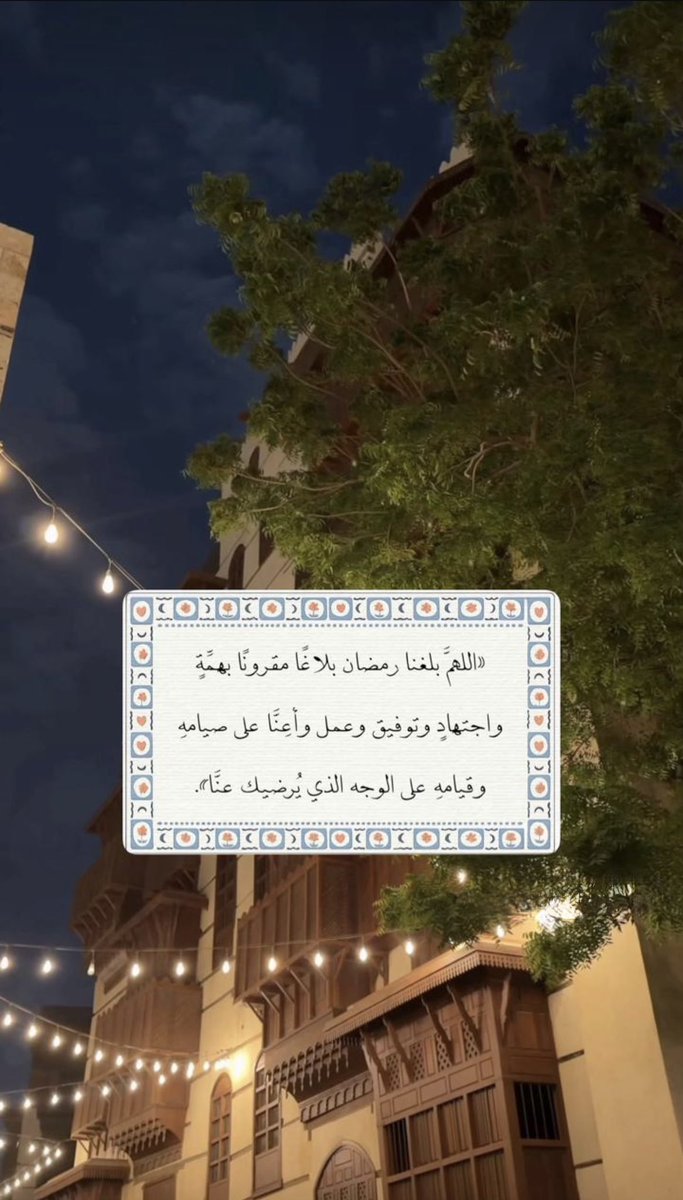 «اللهمَّ بلغنا رمضان بلاغًا مقرونًا بهمَّةٍ
واجتهادٍ وتوفيق وعمل وأعِنَّا على صيامهِ
وقيامهِ على الوجه الذي يُرضيك عنَّا».